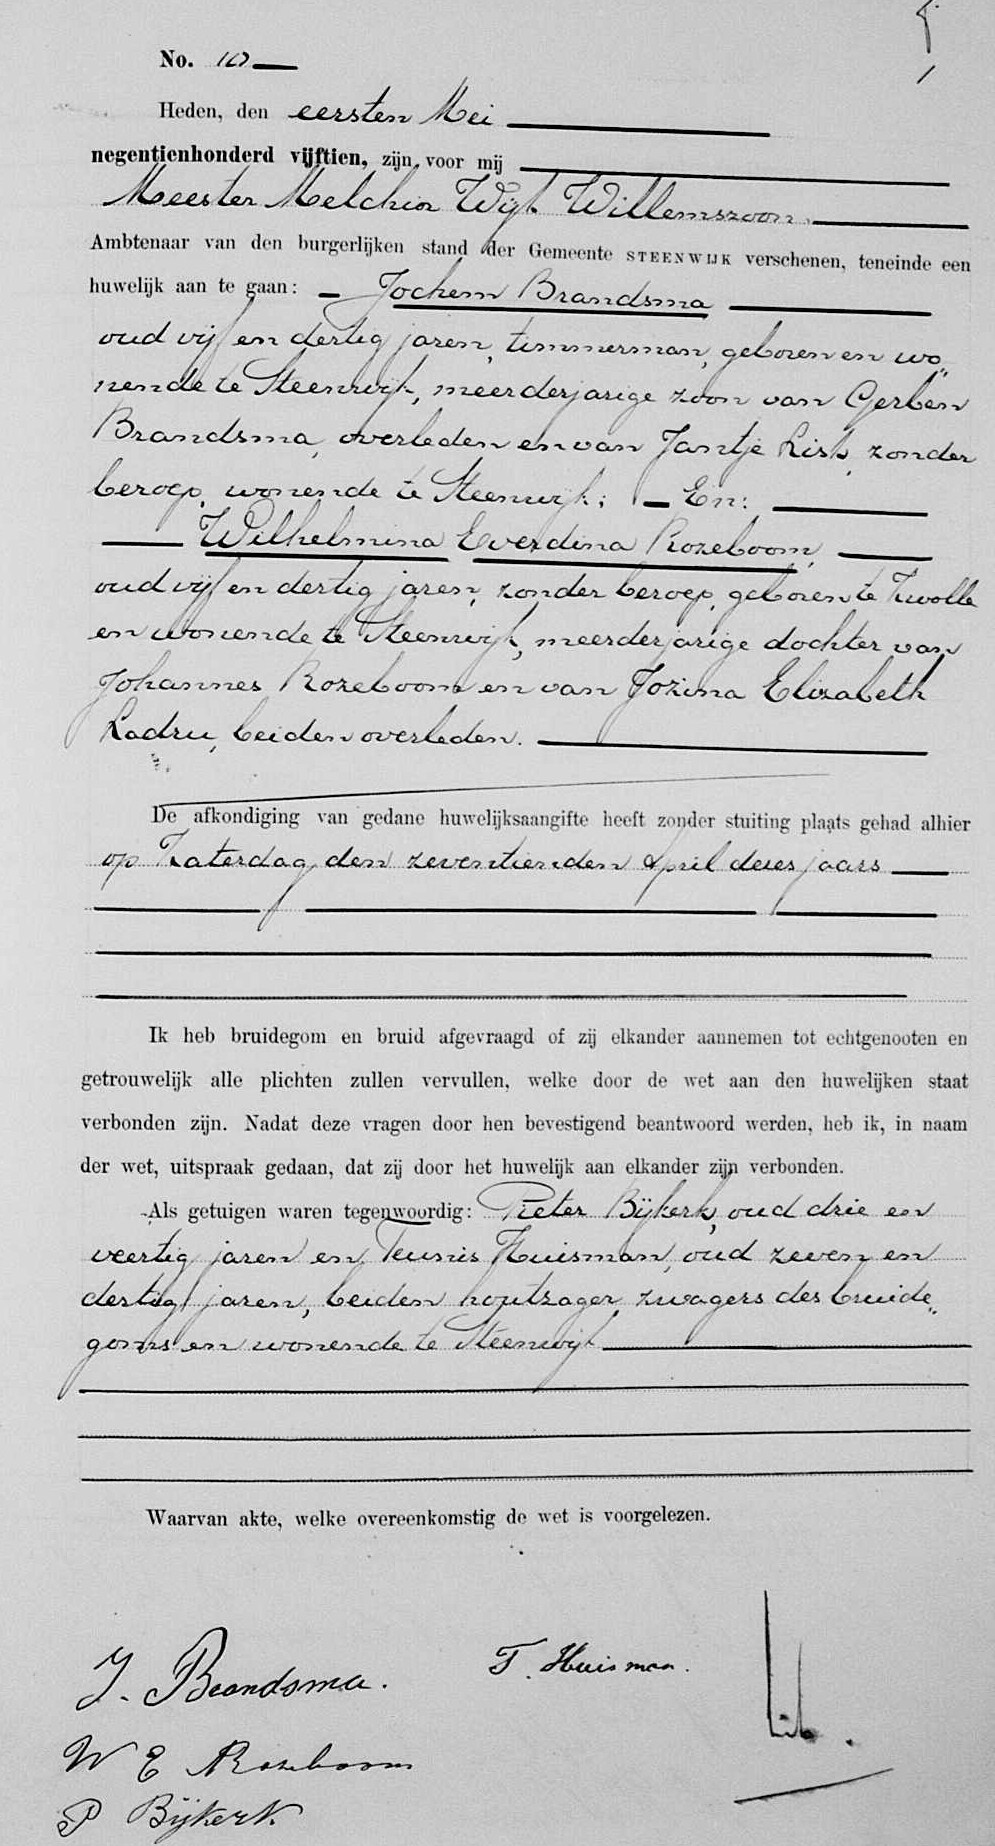 No. 10
Heden, den eersten Mei
negentienhonderd vijftien, zijn voor mij
Meester Melchior Wijt Willemszoon.
Ambtenaar van den burgerlijken stand der Gemeente STEENWIJK verschenen, teneinde een
huwelijk aan te gaan: Jochem Brandsma
oud vijf en dertig jaren, timmerman, geboren en wo„
nende te Steenwijk, meerderjarige zoon van Gerben
Brandsma, overleden en van Jantje Lisk, zonder
beroep, wonende te Steenwijk; En:
Wilhelmina Everdina Rozeboom,
oud vijf en dertig jaren, zonder beroep, geboren te Zwolle
en wonende te Steenwijk, meerderjarige dochter van
Johannes Rozeboom en van Jozina Elizabeth
Ladru, beiden overleden.
De afkondiging van gedane huwelijksaangifte heeft zonder stuiting plaats gehad alhier
op Zaterdag den zeventienden April dezes jaars
Ik heb bruidegom en bruid afgevraagd of zij elkander aannemen tot echtgenooten en
getrouwelijk alle plichten zullen vervullen, welke door de wet aan den huwelijken staat
verbonden zijn. Nadat deze vragen door hen bevestigend beantwoord werden, heb ik, in naam
der wet, uitspraak gedaan, dat zij door het huwelijk aan elkander zijn verbonden.
Als getuigen waren tegenwoordig: Pieter Bijkerk, oud drie en
veertig jaren en Teunis Huisman, oud zeven en
dertig jaren, beiden houtzager, zwagers des bruide„
goms en wonende te Steenwijk
Waarvan akte, welke overeenkomstig de wet is voorgelezen.
J. Brandsma.
T. Huisman.
W E Rozeboom
P Bijkerk